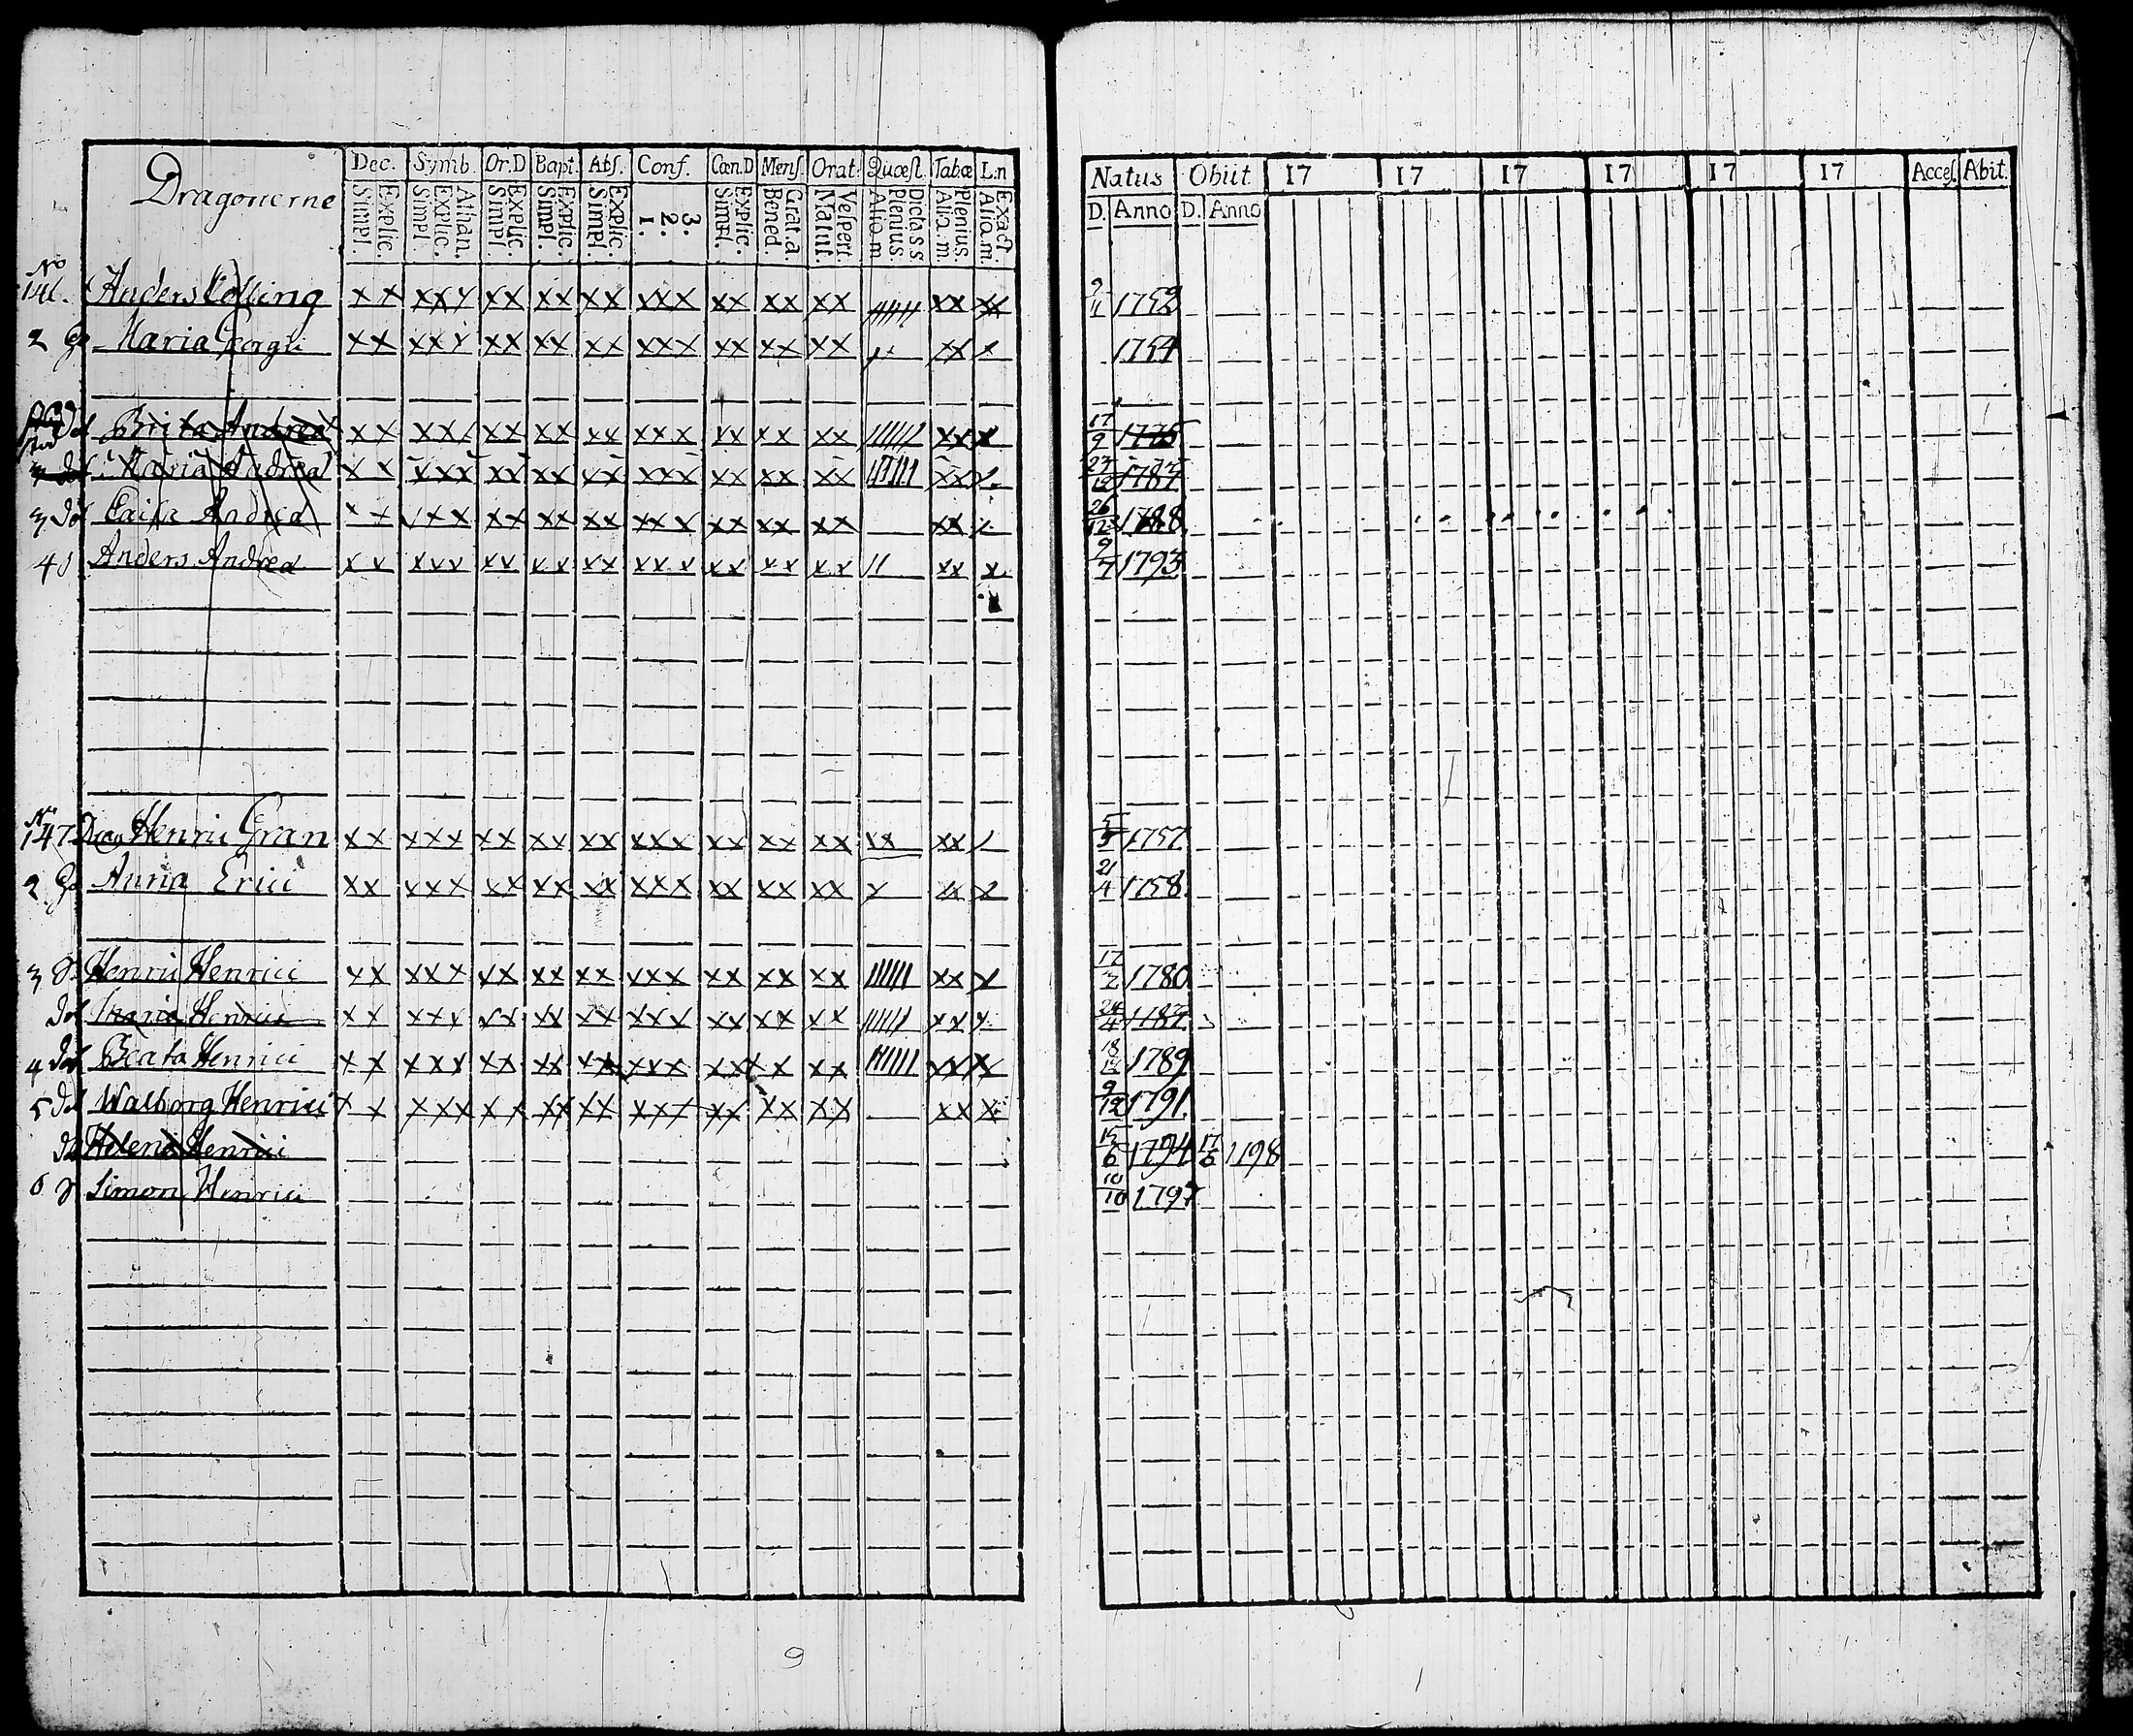 Dragonerne Dec. Symb. Or.D Bapt. Abſ. Conf. Cœn.D Menſ. Orat. Quæſt. Tabæ L.n
Simpl. Explic. Simpl. Explic. Athan. Simpl. Explic. Simpl. Explic. Simpl. Explic. 1. 2. 3. Simpl. Explic. Bened. Grat.a. Matut. Veſpert. Alio.m Plenius Dicta s s Alia.m. Plenius. Alia.m. Exact.
Natus Obiit 17 17 17 17 17 17 Acceſ. Abit.
D. Anno D. Anno
No
146. Anders xx xxx xx xx xx xxx xx xx xx ////// xx xx 9/11 1752
2 Maria xx xxx xx xx xx xxx xx xx xx xx x 1754
Brita Andreæ xx xxx xx xx xx xxx xx xx xx ////// xx x 17/9 1775
Maria Andreæ xx xxx xx xx xx xxx xx xx xx ////// xx 1787
3 Caisa Andreæ xx xxx xx xx xx xxx xx xx xx xx 26/12 1788
4 Anders Andreæ xx xxx xx xx xx xxx xx xx xx // xx x 9/7 1793
No
147 Drag Henric Gran xx xxx xx xx xx xxx xx xx xx xx xx / 1757
2 Anna Erici xx xxx xx xx xx xxx xx xx xx x xx x 21/4 1758
3 S. Henric Henrici xx xxx xx xx xx xxx xx xx xx ////// xx x 1780
Maria Henrici xx xxx xx xx xx xxx xx xx xx ////// xx x 24/4 1787
4 Beata Henrici xx xxx xx xx xx xxx xx xx xx ////// xx x 1789
5 Walborg Henrici xx xxx xx xx xx xxx xx xx xx xx x 9/12 1791
Helena Henrici 15/6 1794 17/6 1798
6 S Simon Henrici 10/10 1797
9